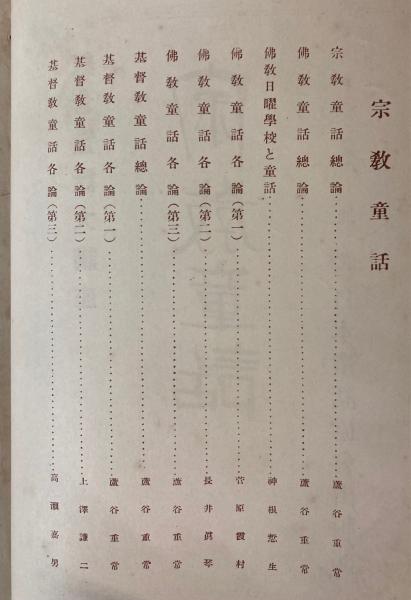 宗教童話
宗教童話總論……蘆谷重常
佛教童話總論……蘆谷重常
佛教日曜學校と童話……神根悊生
佛教童話各論(第一)……菅原霞村
佛教童話各論(第二)……長井眞琴
佛教童話各論(第三)……蘆谷重常
基督教童話總論……蘆谷重常
基督教童話各論(第一)……蘆谷重常
基督教童話各論(第二)……上澤謙二
基督教童話各論(第三)……高瀨嘉男